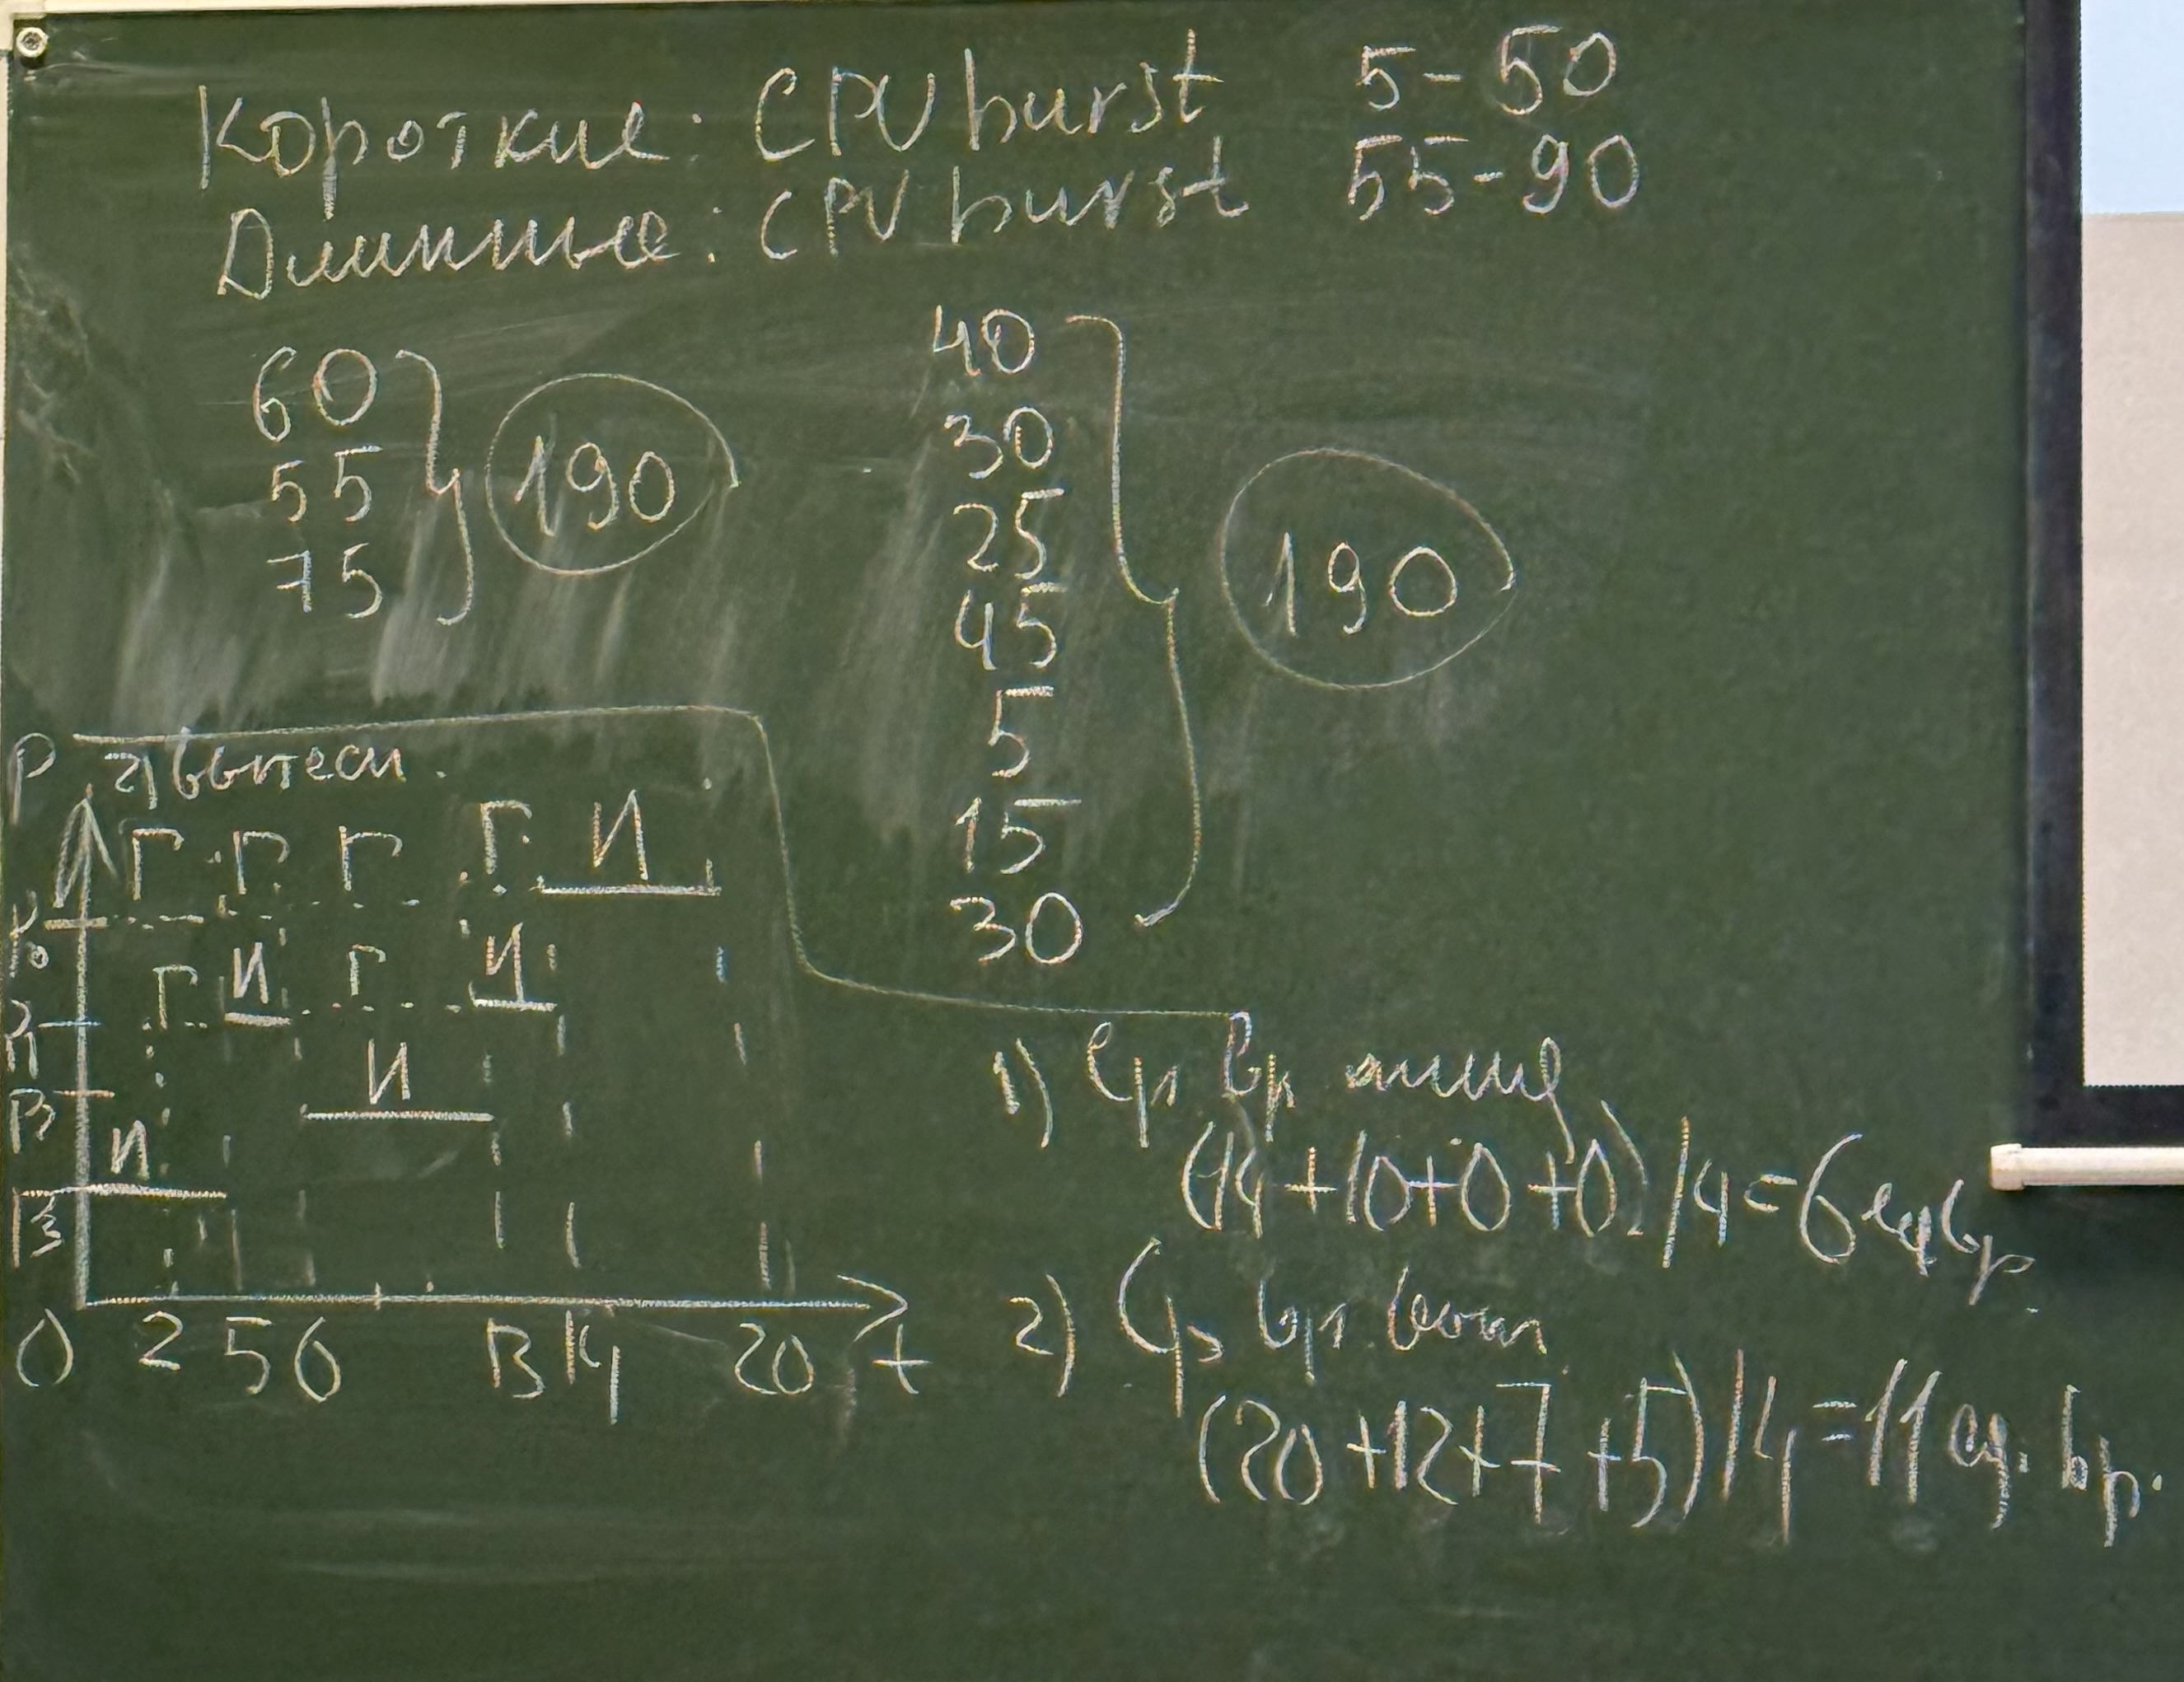 Короткие: CPU burst 5-50
Длинные: CPU burst 55-90
60
55
75
190
40
30
25
45
5
15
30
190
P 2) вытесн.
Г Г Г Г И
Г И Г И
И
И
0 2 5 6 13 14 20 t
1) Ср вр ожид
(14+10+0+0)/4=6 ед вр.
2) Ср вр вып
(20+12+7+5)/4=11 ед. вр.